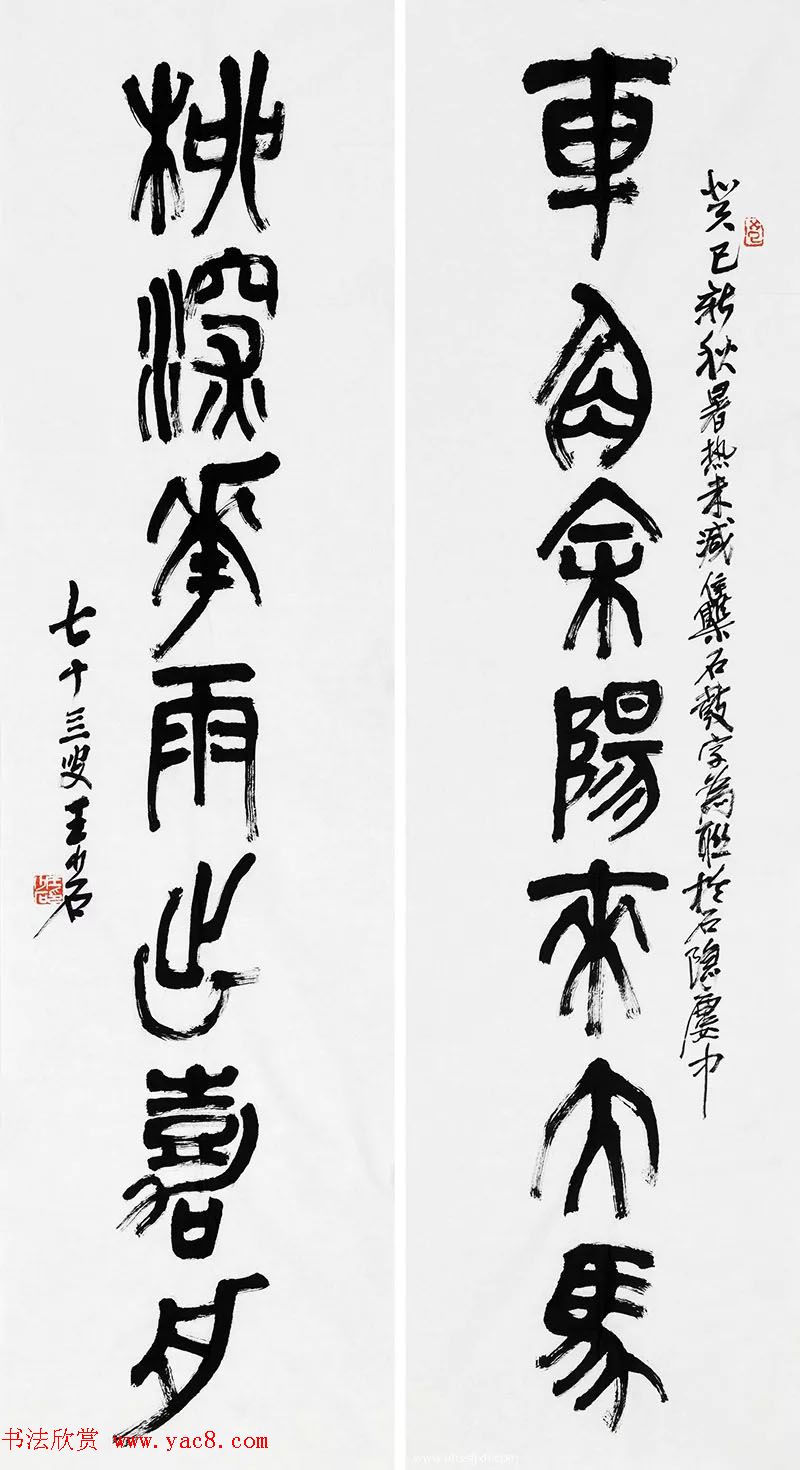 車角余陽來大馬
癸巳新秋暑热未減集石鼓字為联於石隐廔中
柳深華雨出嘉舟
七十三叟王小石
书法欣赏 www.yac8.com